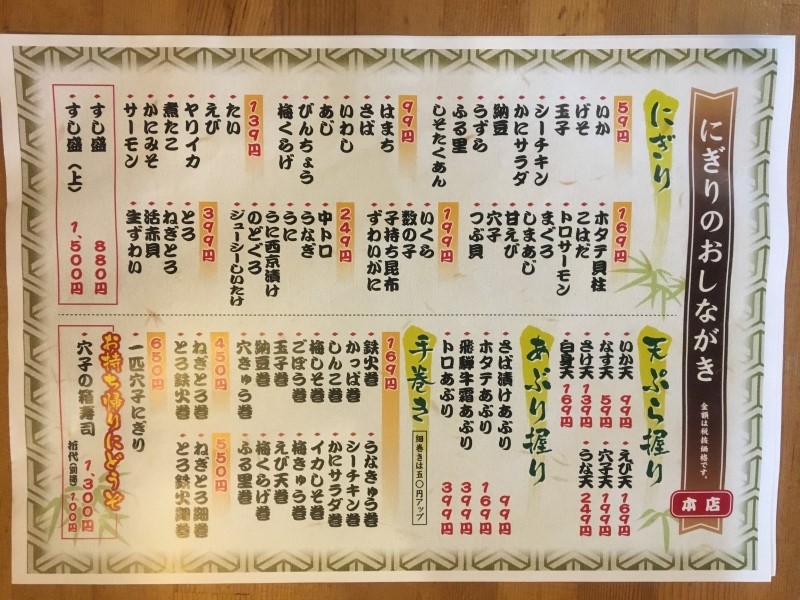 にぎりのおしながき
金額は税抜価格です。
本店
にぎり
59円
いか
げそ
玉子
シーチキン
かにサラダ
納豆
うずら
ふる里
しそたくあん
99円
はまち
さば
いわし
あじ
びんちょう
梅くらげ
139円
たい
えび
ヤリイカ
煮たこ
かにみそ
サーモン
169円
ホタテ貝柱
こはだ
トロサーモン
まぐろ
しまあじ
甘えび
穴子
つぶ貝
199円
いくら
数の子
子持ち昆布
ずわいがに
249円
中トロ
うなぎ
うに
うに西京漬け
のどぐろ
ジューシーしいたけ
399円
とろ
ねぎとろ
活赤貝
生ずわい
すし盛 880円
すし盛(上) 1,500円
天ぷら握り
いか天 99円
なす天 59円
さけ天 139円
白身天 169円
えび天 169円
穴子天 199円
うな天 249円
あぶり握り
さば漬けあぶり 99円
ホタテあぶり 169円
飛騨牛霜あぶり 399円
トロあぶり 399円
手巻き
細巻きは五〇円アップ
169円
鉄火巻
かっぱ巻
しんこ巻
梅しそ巻
ごぼう巻
玉子巻
納豆巻
穴きゅう巻
うなきゅう巻
シーチキン巻
かにサラダ巻
イカしそ巻
梅きゅう巻
えび天巻
梅くらげ巻
ふる里巻
450円
ねぎとろ巻
とろ鉄火巻
550円
ねぎとろ細巻
とろ鉄火細巻
650円
一匹穴子にぎり
お持ち帰りにどうぞ
穴子の箱寿司 1,300円
折代(別途)100円